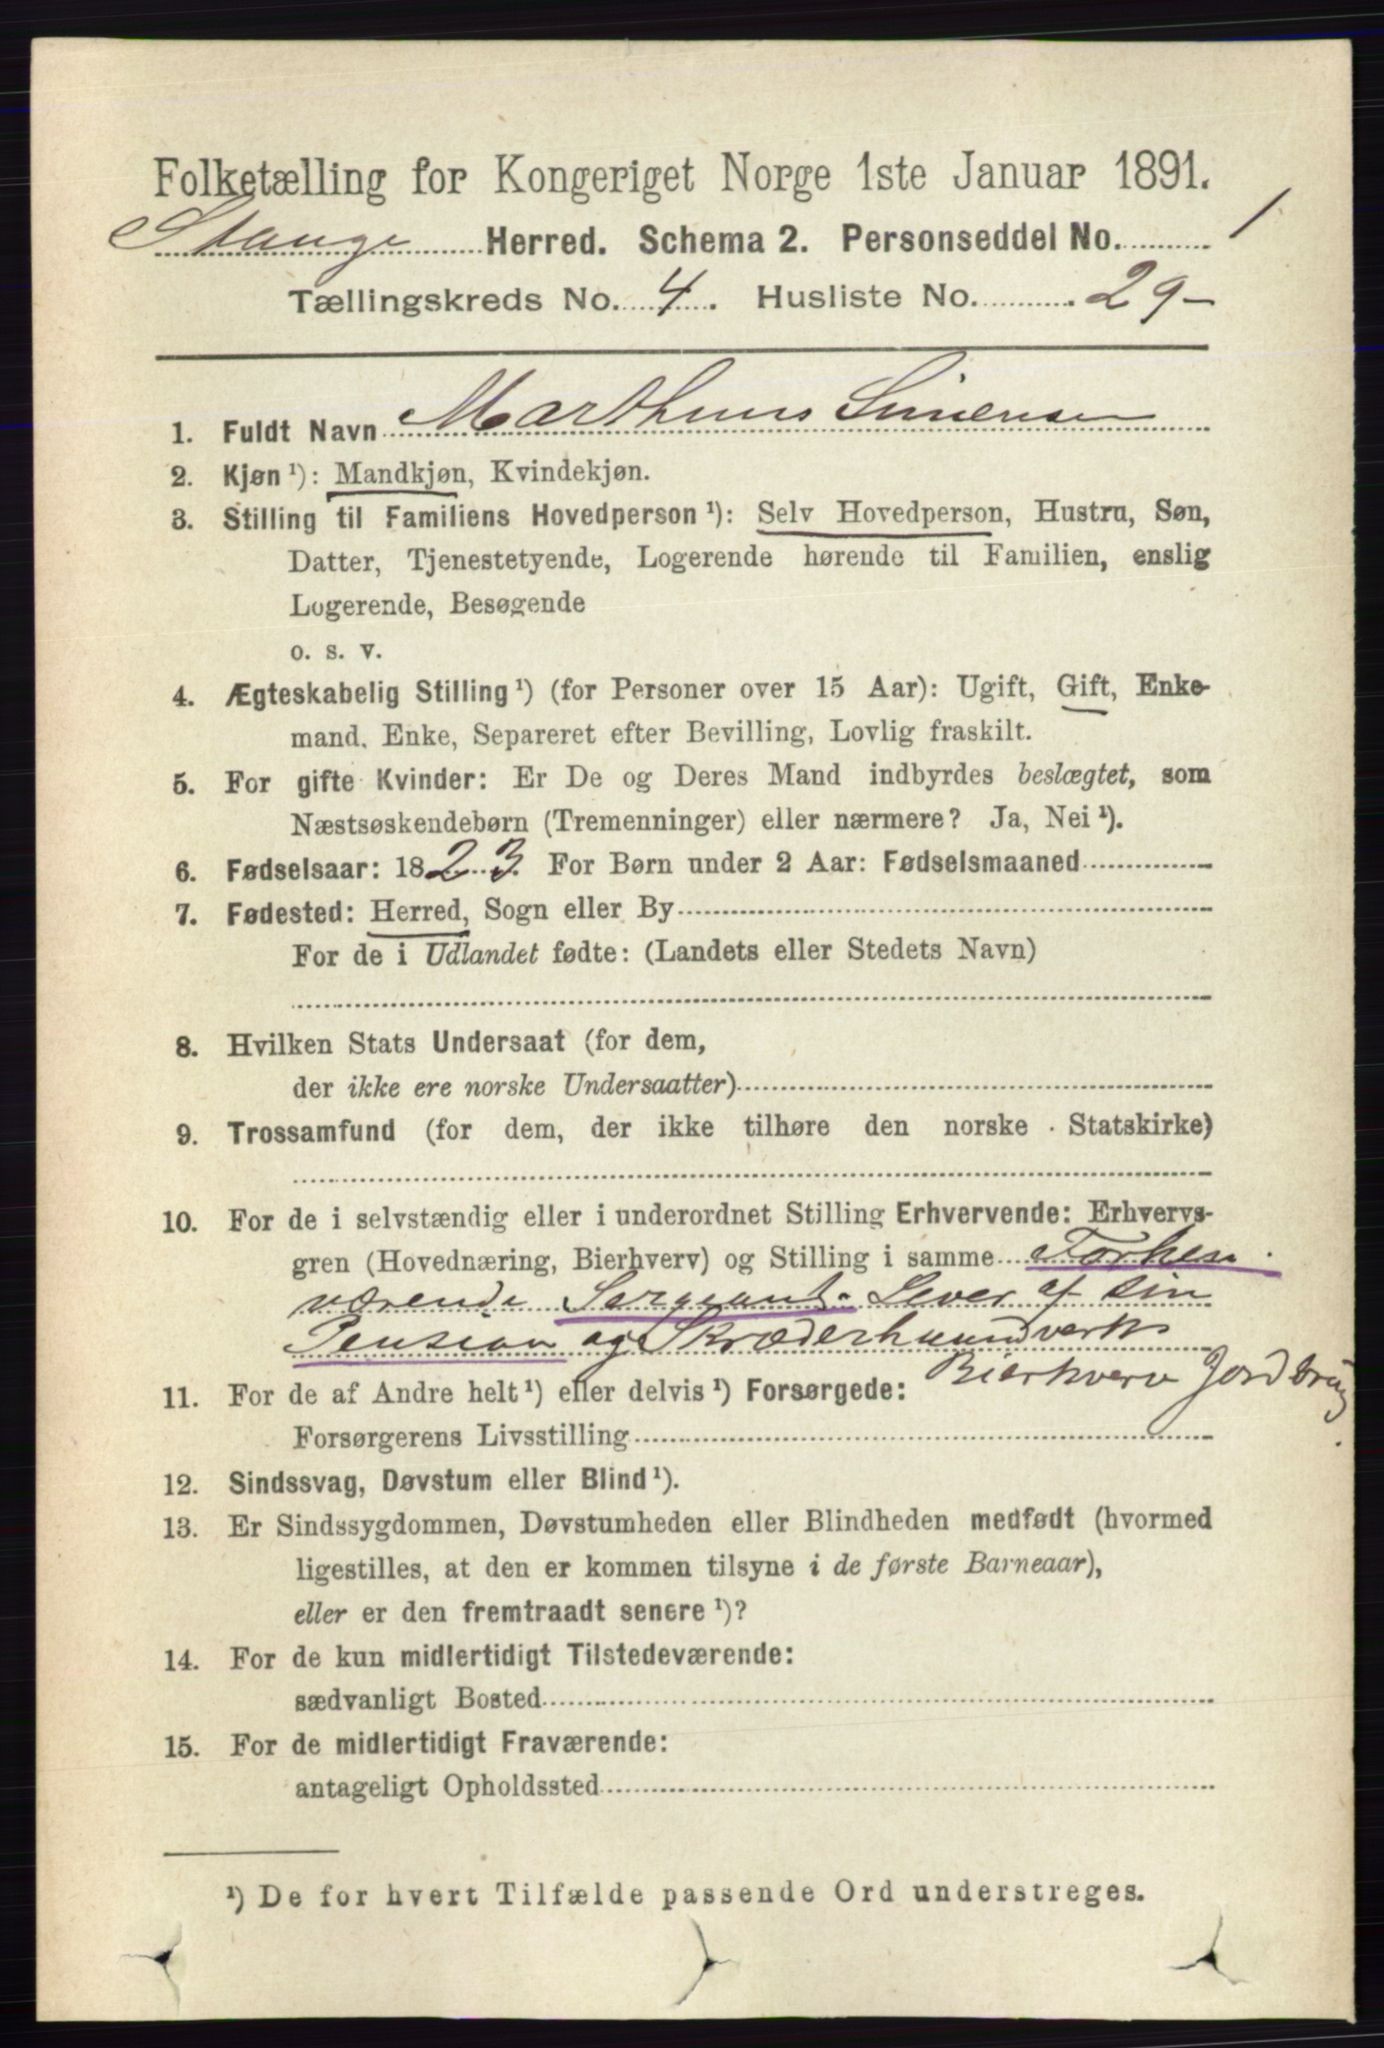 Folketælling for Kongeriget Norge 1ste Januar 1891.
Stange Herred. Schema 2. Personseddel No. 1
Tællingskreds No. 4. Husliste No. 29-
1. Fuldt Navn Marthinus Simensen
2. Kjøn ¹): Mandkjøn, Kvindekjøn.
3. Stilling til Familiens Hovedperson ¹): Selv Hovedperson, Hustru, Søn,
Datter, Tjenestetyende, Logerende hørende til Familien, enslig
Logerende, Besøgende
o. s. v.
4. Ægteskabelig Stilling ¹) (for Personer over 15 Aar): Ugift, Gift, Enke-
mand, Enke, Separeret efter Bevilling, Lovlig fraskilt.
5. For gifte Kvinder: Er De og Deres Mand indbyrdes beslægtet, som
Næstsøskendebørn (Tremenninger) eller nærmere? Ja, Nei ¹).
6. Fødselsaar: 1823. For Børn under 2 Aar: Fødselsmaaned
7. Fødested: Herred, Sogn eller By
For de i Udlandet fødte: (Landets eller Stedets Navn)
8. Hvilken Stats Undersaat (for dem,
der ikke ere norske Undersaatter)
9. Trossamfund (for dem, der ikke tilhøre den norske Statskirke)
10. For de i selvstændig eller i underordnet Stilling Erhvervende: Erhvervs-
gren (Hovednæring, Bierhverv) og Stilling i samme Forhen
værende Sergeant. Lever af sin
Pension og Skræderhaandverk
Bierhverv Jordbrug.
11. For de af Andre helt ¹) eller delvis ¹) Forsørgede:
Forsørgerens Livsstilling
12. Sindssvag, Døvstum eller Blind ¹).
13. Er Sindssygdommen, Døvstumheden eller Blindheden medfødt (hvormed
ligestilles, at den er kommen tilsyne i de første Barneaar),
eller er den fremtraadt senere ¹)?
14. For de kun midlertidigt Tilstedeværende:
sædvanligt Bosted
15. For de midlertidigt Fraværende:
antageligt Opholdssted
¹) De for hvert Tilfælde passende Ord understreges.